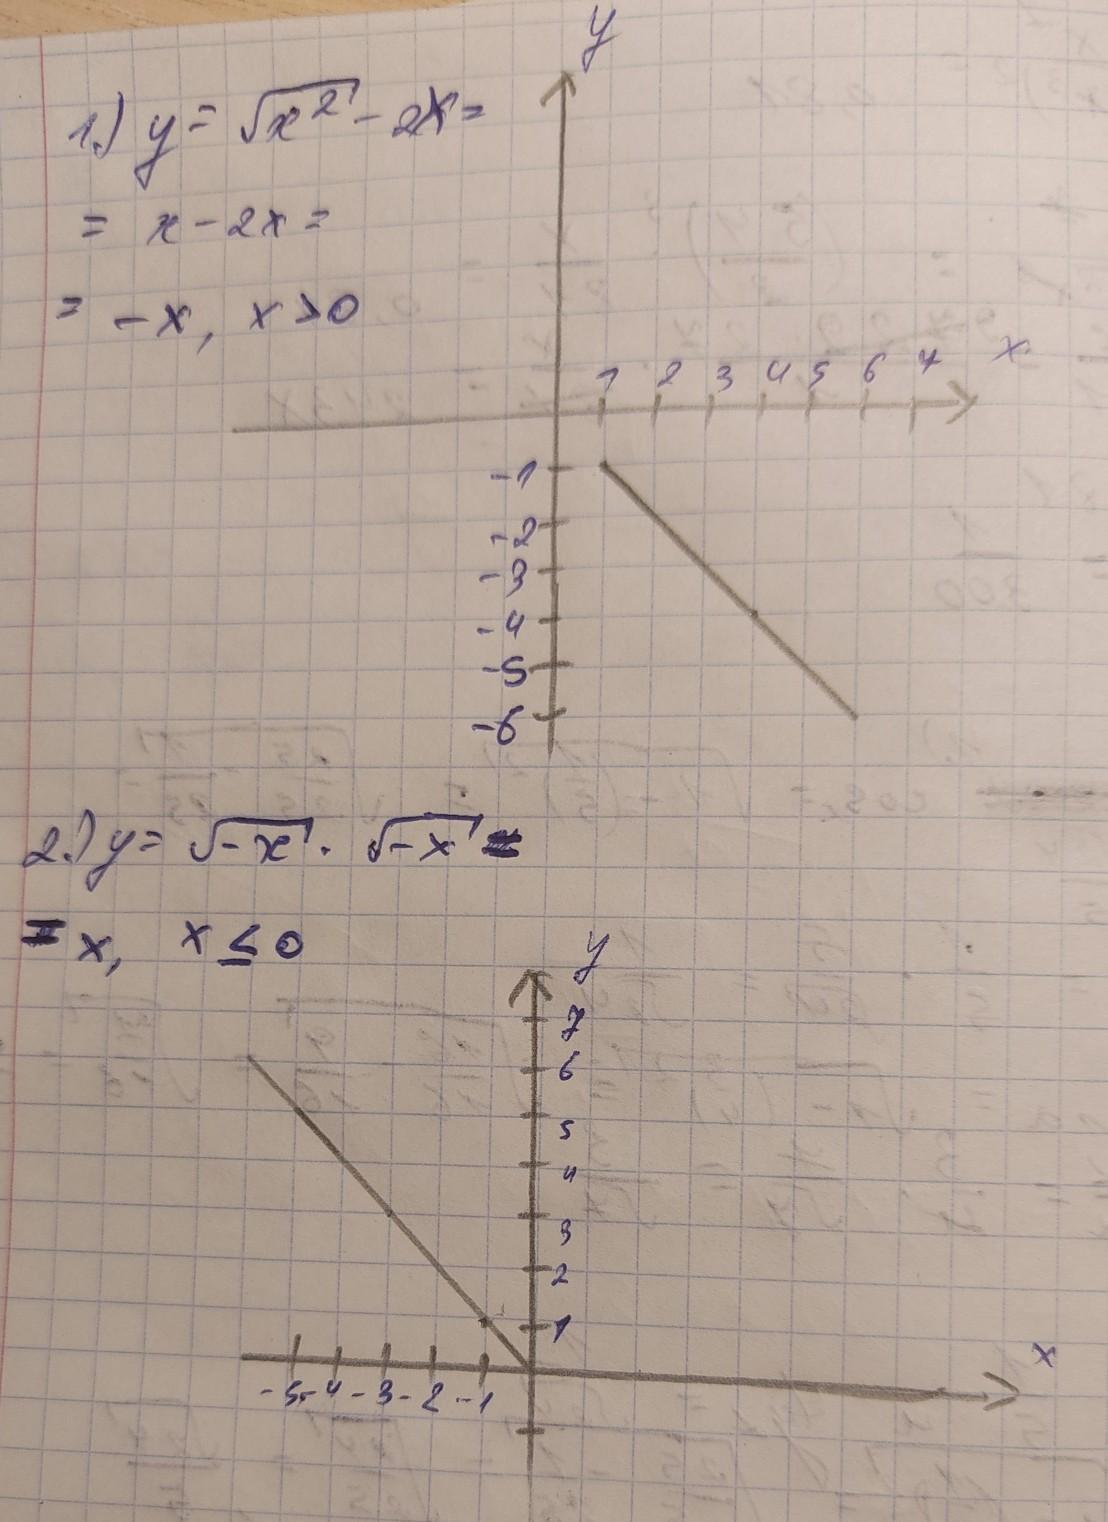 1.) y = √x² - 2x =
= x - 2x =
= -x, x > 0
y
1 2 3 4 5 6 7 x
-1
-2
-3
-4
-5
-6
2.) y = √-x · √-x =
= x, x ≤ 0
y
7
6
5
4
3
2
1
x
-5 -4 -3 -2 -1